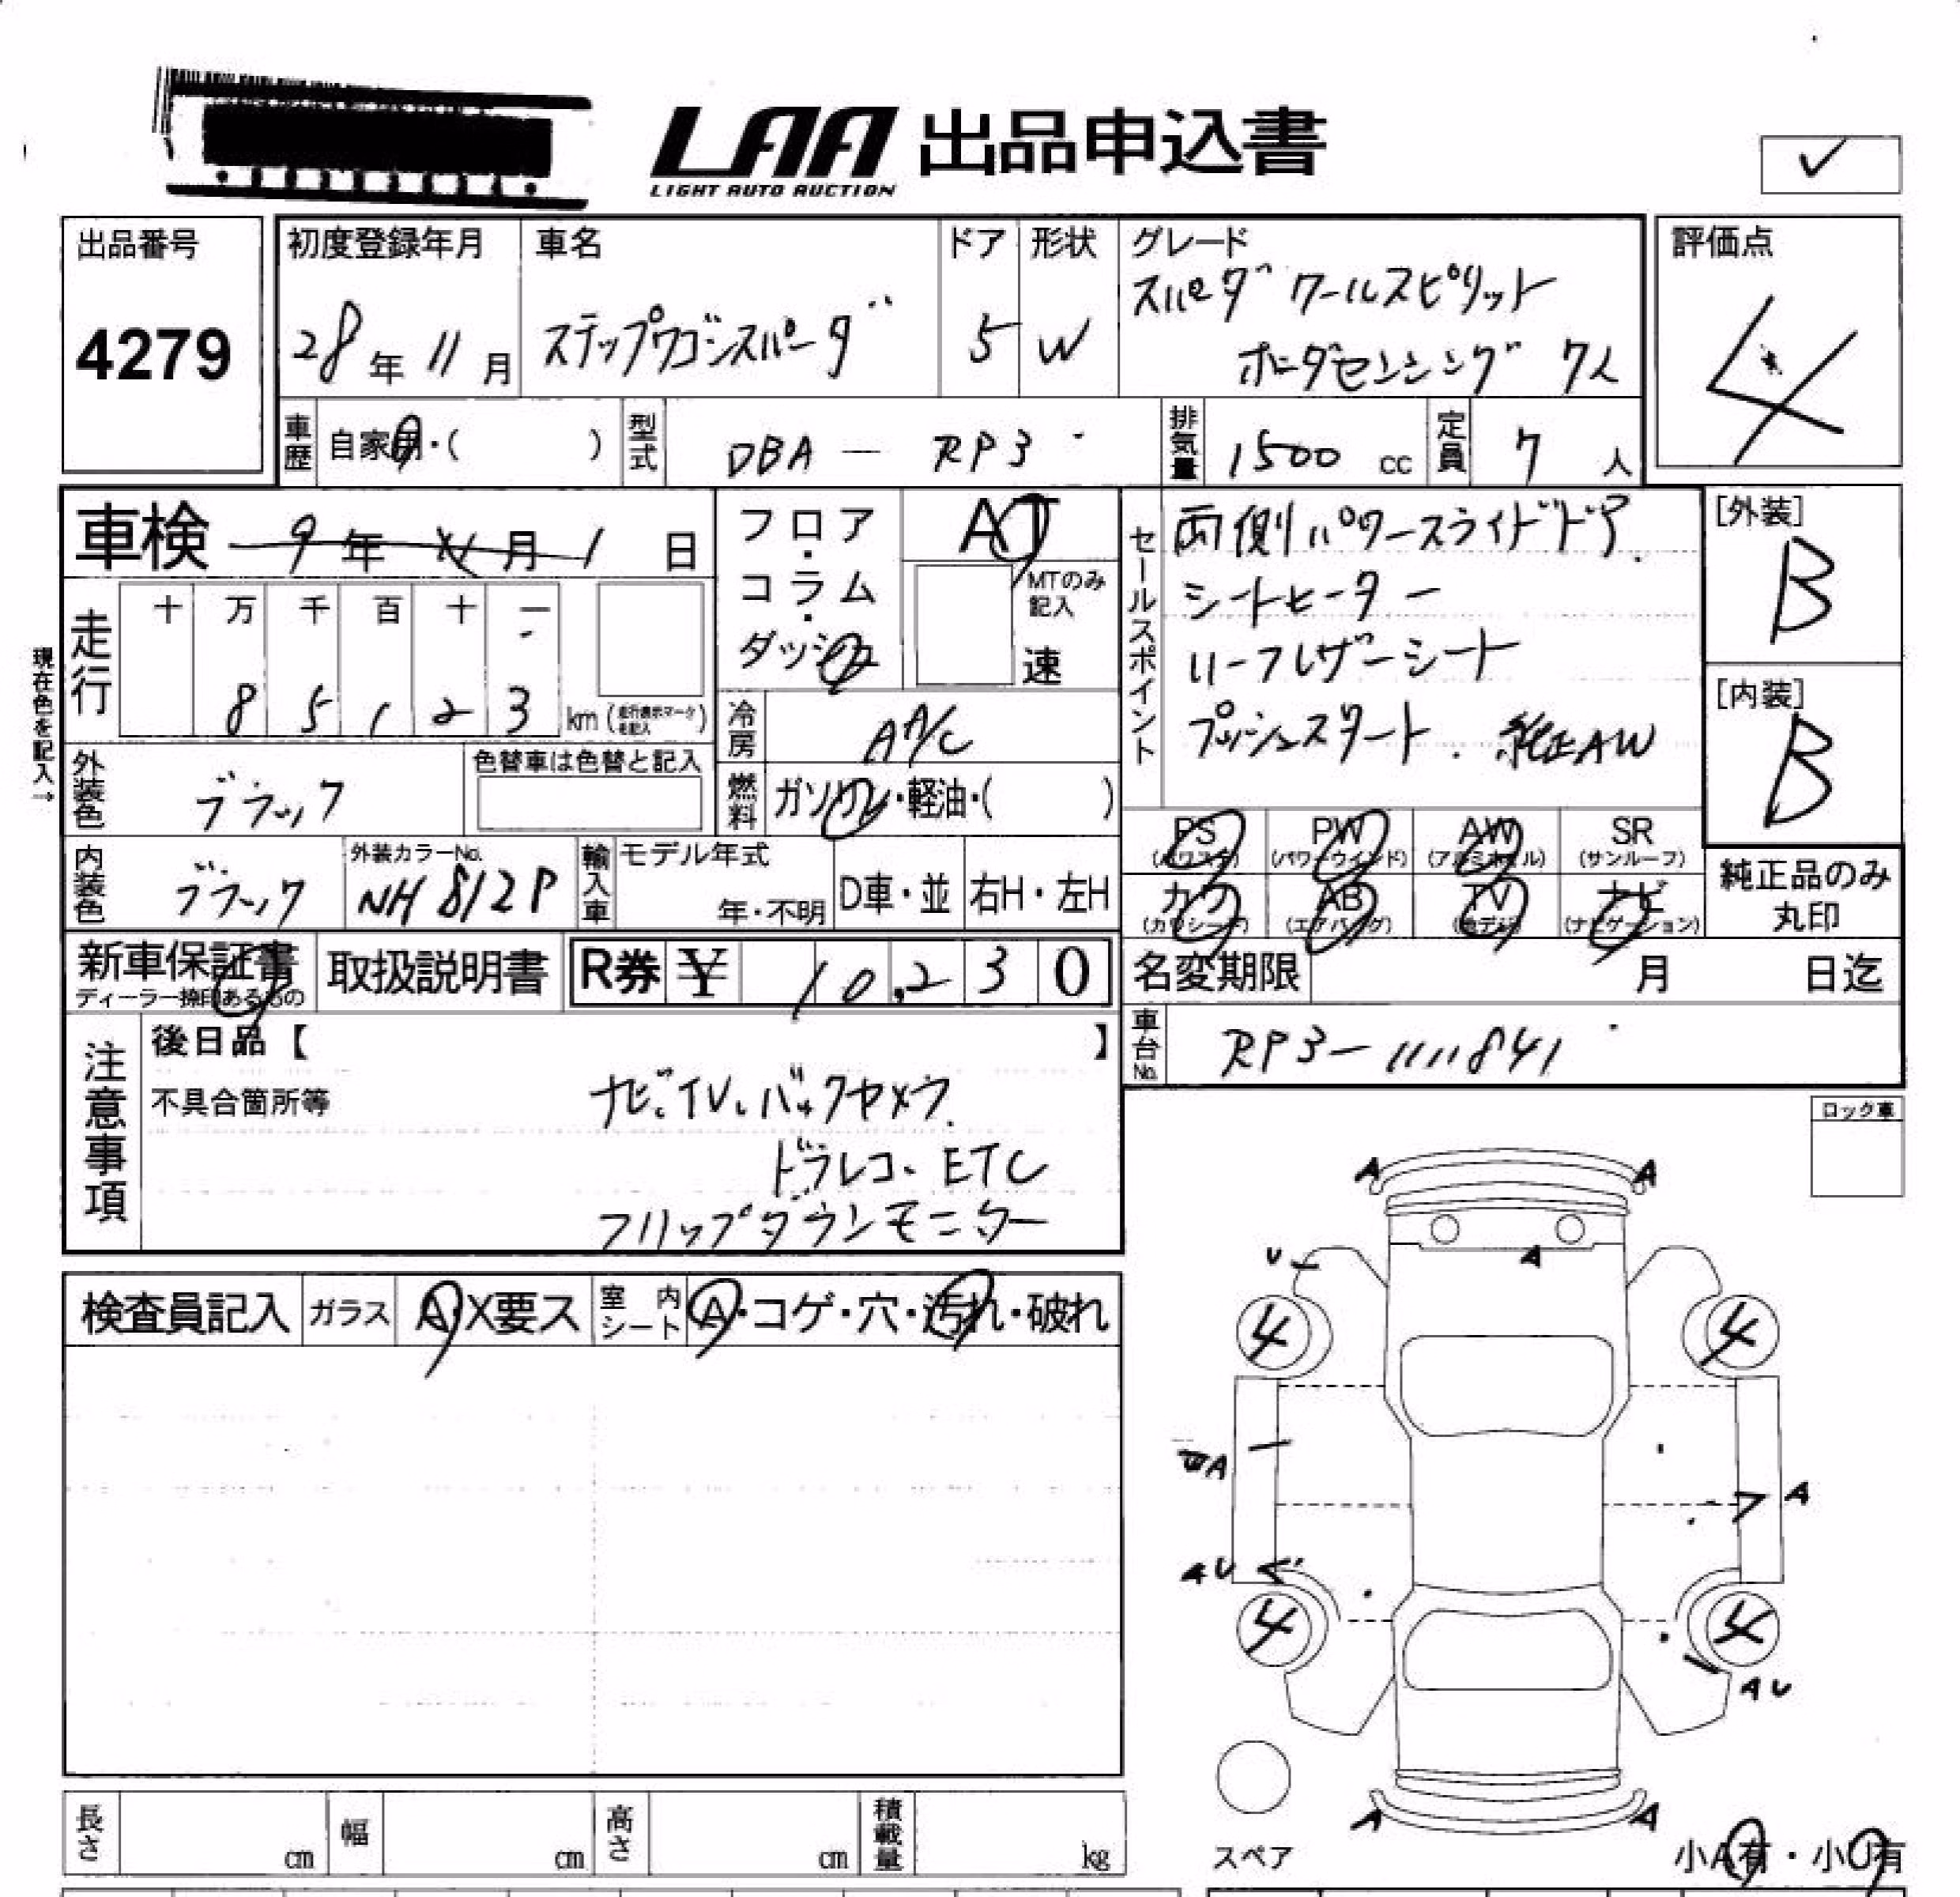 LAA 出品申込書
LIGHT AUTO AUCTION
✓
出品番号
4279
初度登録年月
28年11月
車名
ステップワゴンスパーダ
ドア
5
形状
W
グレード
スパーダ クールスピリット
ホンダセンシング 7人
評価点
4
車歴
自家用・( )
型式
DBA — RP3
排気量
1500 cc
定員
7 人
車検 9年11月1日
フロア・コラム・ダッシュ
AT
MTのみ記入
速
セールスポイント
両側パワースライドドア.
シートヒーター
ハーフレザーシート
プッシュスタート. 純正AW
[外装]
B
[内装]
B
現在色を記入→
走行
十 万 千 百 十 一
8 5 1 2 3 km (走行表示マークを記入)
冷房
AA/C
燃料
ガソリン・軽油・( )
外装色
ブラック
色替車は色替と記入
内装色
ブラック
外装カラーNo.
NH812P
輸入車
モデル年式
年・不明
D車・並
右H・左H
PS
(パワステ)
PW
(パワーウインド)
AW
(アルミホイル)
SR
(サンルーフ)
カワ
(カワシート)
AB
(エアバッグ)
TV
(地デジ)
ナビ
(ナビゲーション)
純正品のみ
丸印
新車保証書
ディーラー捺印あるもの
取扱説明書
R券 ¥ 10,230
名変期限 月 日迄
車台No.
RP3-1111841
注意事項
後日品【 】
不具合箇所等
ナビ、TV、バックカメラ
ドラレコ、ETC
フリップダウンモニター
ロック車
検査員記入
ガラス
A・X要ス
室内シート
A・コゲ・穴・汚れ・破れ
A A
A
U
4 4
A
A
AU
4 4
AU
A A
スペア
小A有・小U有
長さ cm
幅 cm
高さ cm
積載量 kg